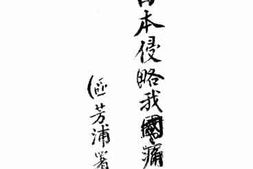 日本侵略我國痛
(區芳浦署